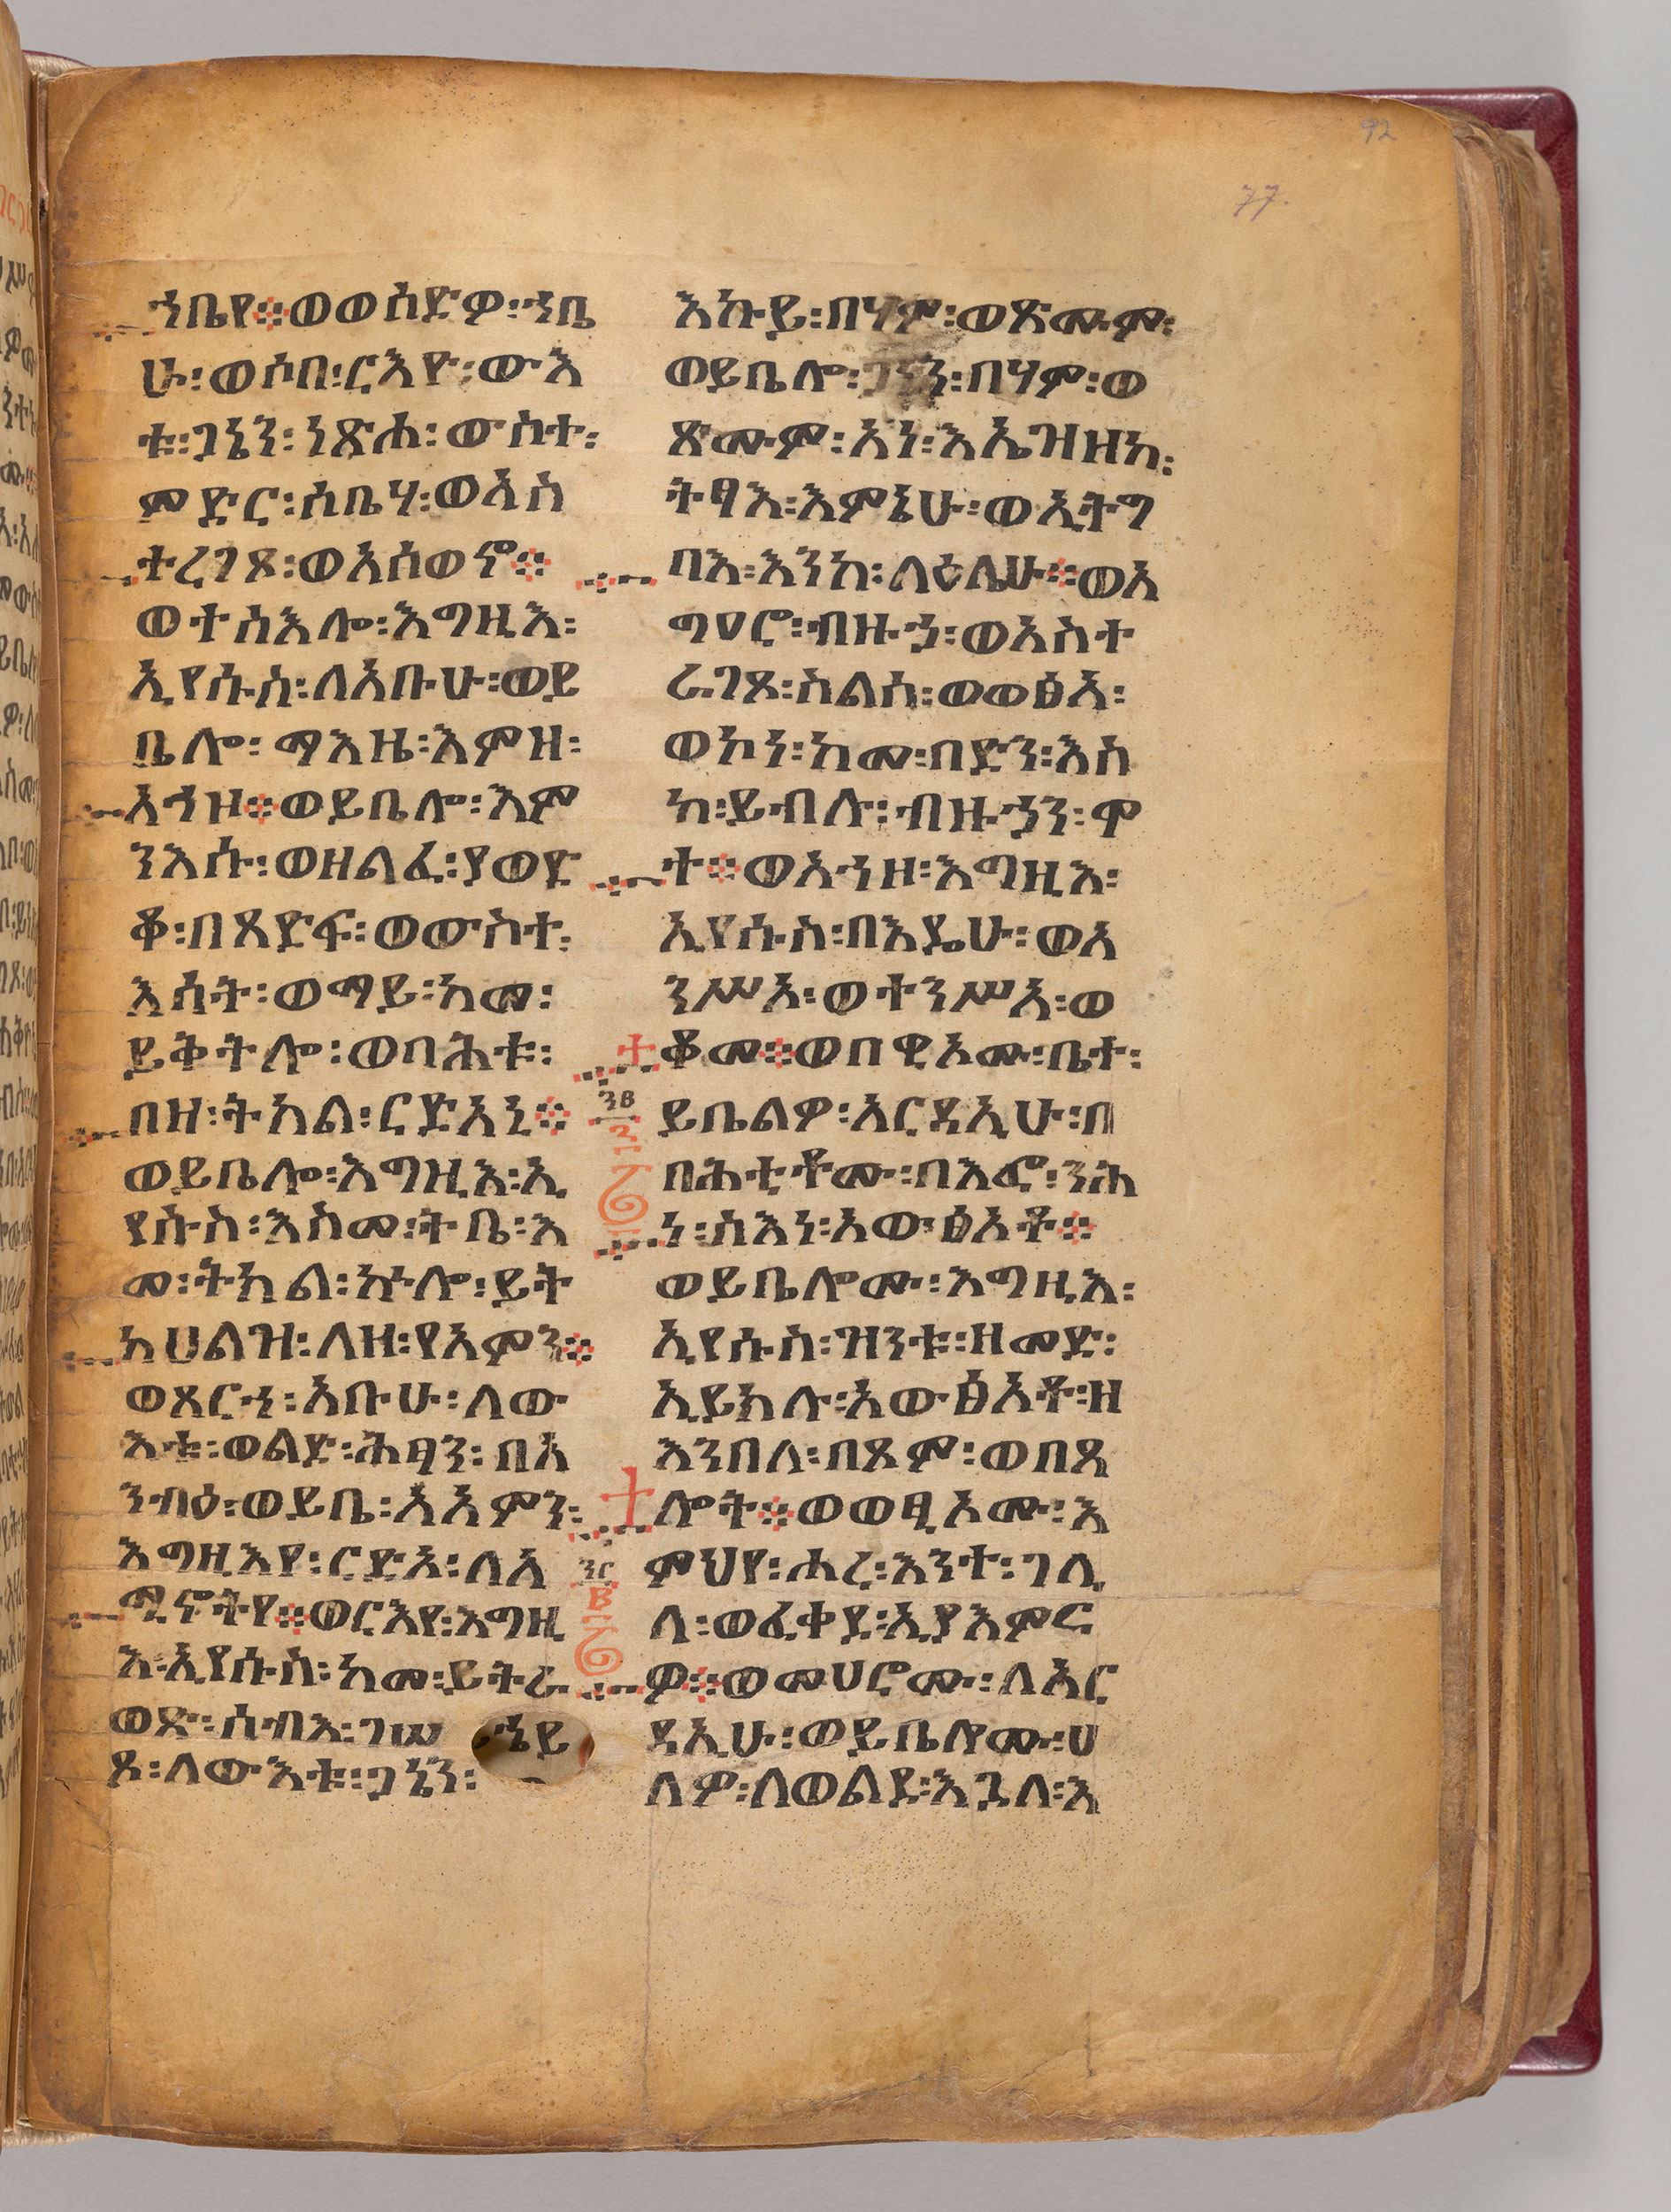 92
77.
ኀቤየ፨ወወሰድዎ፡ኀቤ
ሁ፡ወሶበ፡ርእዮ፡ውእ
ቱ፡ጋኔን፡ነጽሐ፡ውስተ፡
ምድር፡ሰቤሃ፡ወአስ
ተረገጾ፡ወአሰወኖ፨
ወተስእሎ፡እግዚእ፡
ኢየሱስ፡ለአቡሁ፡ወይ
ቤሎ፡ማእዜ፡እምዘ፡
አኀዞ፨ወይቤሎ፡እም
ንእሱ፡ወዘልፈ፡ያወድ
ቆ፡በጸድፍ፡ወውስተ፡
እሳት፡ወማይ፡ከመ፡
ይቅትሎ፡ወባሕቱ፡
በዘ፡ትክል፡ርድአኒ፨
ወይቤሎ፡እግዚእ፡ኢ
የሱስ፡እስመ፡ትቤ፡እ
መ፡ትክል፡ኵሎ፡ይት
ከሀልዝ፡ለዘ፡የአምን፨
ወጸርኀ፡አቡሁ፡ለው
እቱ፡ወልድ፡ሕፃን፡በአ
ንብዕ፡ወይቤ፡አአምን፡
እግዚእየ፡ርድኦ፡ለአ
ሚኖትየ፨ወርእየ፡እግዚ
እ፡ኢየሱስ፡ከመ፡ይትራ
ወጽ፡ሰብእ፡ገሠ
ጾ፡ለውእቱ፡ጋኔን፡
እኩይ፡በሃም፡ወጽሙም፡
ወይቤሎ፡ጋኔን፡በሃም፡ወ
ጽሙም፡አነ፡እኤዝዘከ፡
ትፃእ፡እምኔሁ፡ወኢትግ
ባእ፡እንከ፡ላዕሌሁ፨ወአ
ግዐሮ፡ብዙኃ፡ወአስተ
ራገጾ፡ስልሰ፡ወወፅአ፡
ወኮነ፡ከመ፡በድን፡እስ
ከ፡ይብሉ፡ብዙኃን፡ሞ
ተ፨ወአኀዘ፡እግዚእ፡
ኢየሱስ፡በእዴሁ፡ወአ
ንሥአ፡ወተንሥአ፡ወ
ቆመ፨ወበዊኦሙ፡ቤተ፡
ይቤልዎ፡አርዳኢሁ፡በ
በሕቲቶሙ፡በእፎ፡ንሕ
ነ፡ስእነ፡አውፅኦቶ፨
ወይቤሎሙ፡እግዚእ፡
ኢየሱስ፡ዝንቱ፡ዘመድ፡
ኢይክሉ፡አውፅኦቶ፡ዘ
እንበለ፡በጾም፡ወበጸ
ሎት፨ወወፂኦሙ፡እ
ምህየ፡ሐረ፡እንተ፡ገሊ
ላ፡ወፈቀደ፡ኢያእምር
ዎ፨ወመሀሮሙ፡ለአር
ዳኢሁ፡ወይቤሎሙ፡ሀ
ለዎ፡ለወልደ፡እጓለ፡እ